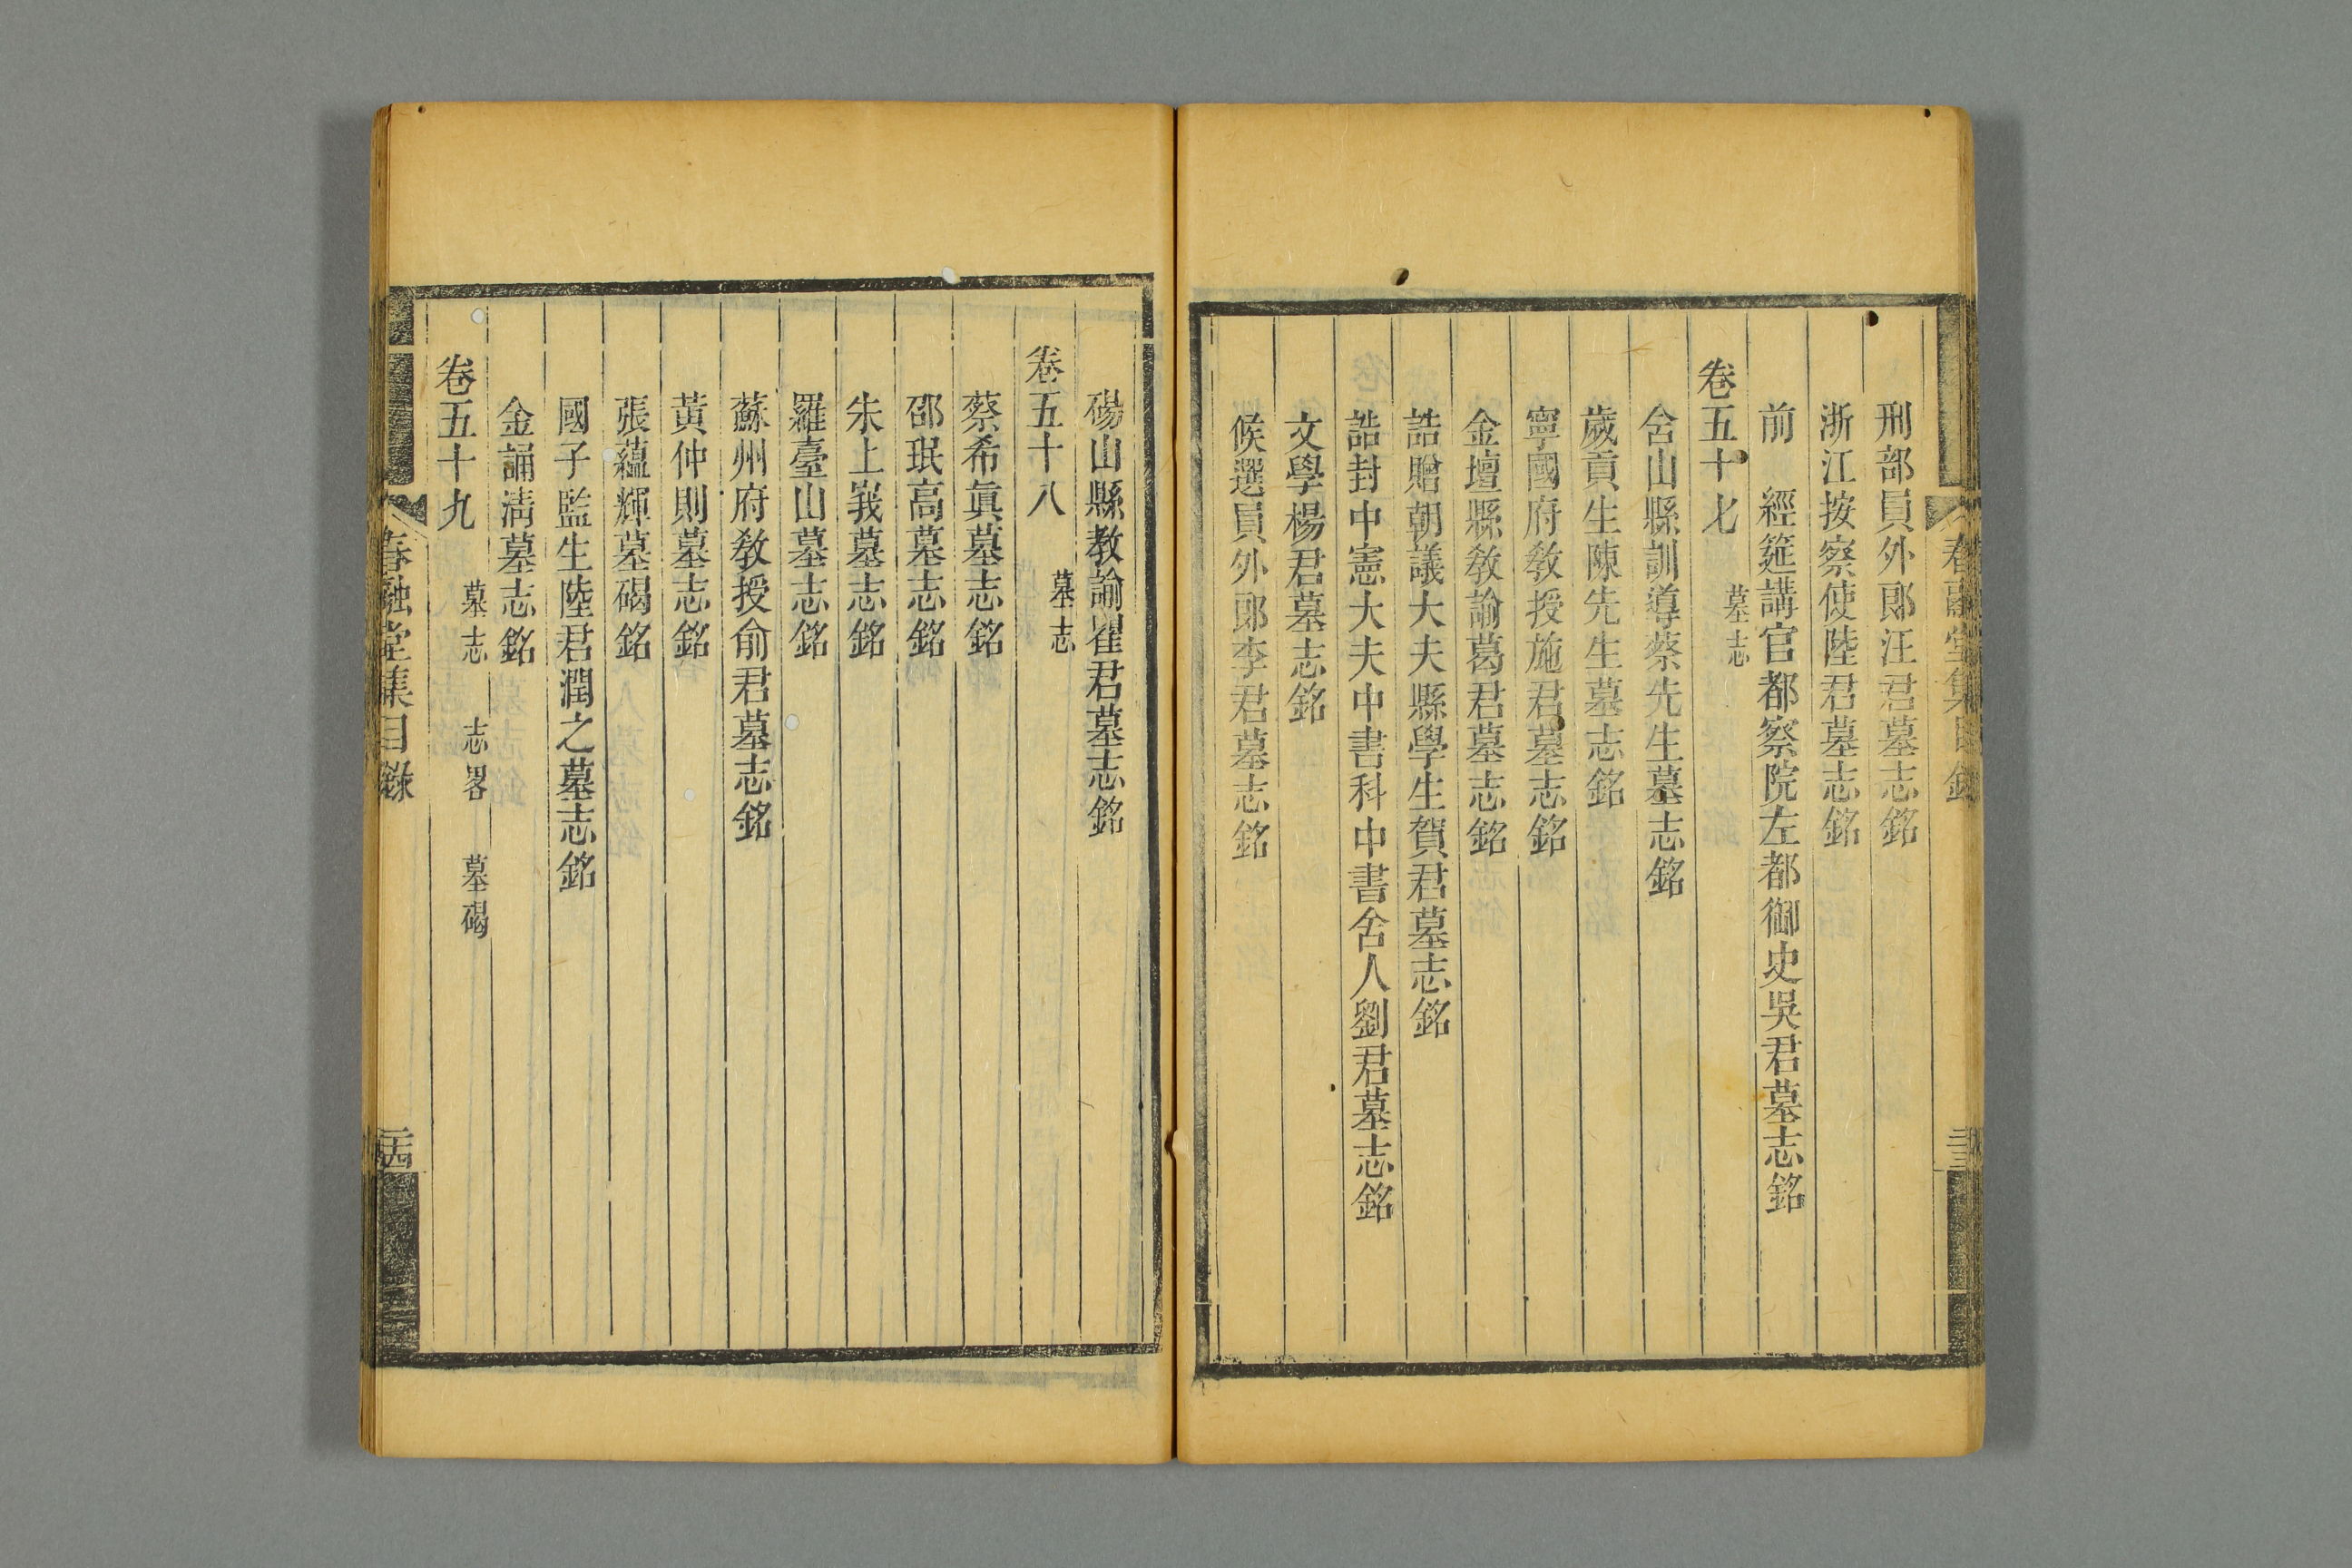 春融堂集目錄
二十三
刑部員外郎汪君墓志銘
浙江按察使陸君墓志銘
前　經筵講官都察院左都御史吳君墓志銘
卷五十七　墓志
含山縣訓導蔡先生墓志銘
歲貢生陳先生墓志銘
寧國府教授施君墓志銘
金壇縣敎諭葛君墓志銘
誥贈朝議大夫縣學生賀君墓志銘
誥封中憲大夫中書科中書舍人劉君墓志銘
文學楊君墓志銘
候選員外郎李君墓志銘
碭山縣教諭瞿君墓志銘
卷五十八　墓志
蔡希眞墓志銘
邵珉高墓志銘
朱上峩墓志銘
羅臺山墓志銘
蘇州府敎授俞君墓志銘
黃仲則墓志銘
張蘊輝墓碣銘
國子監生陸君潤之墓志銘
金誦淸墓志銘
卷五十九　墓志　志畧　墓碣
春融堂集目錄
二十四